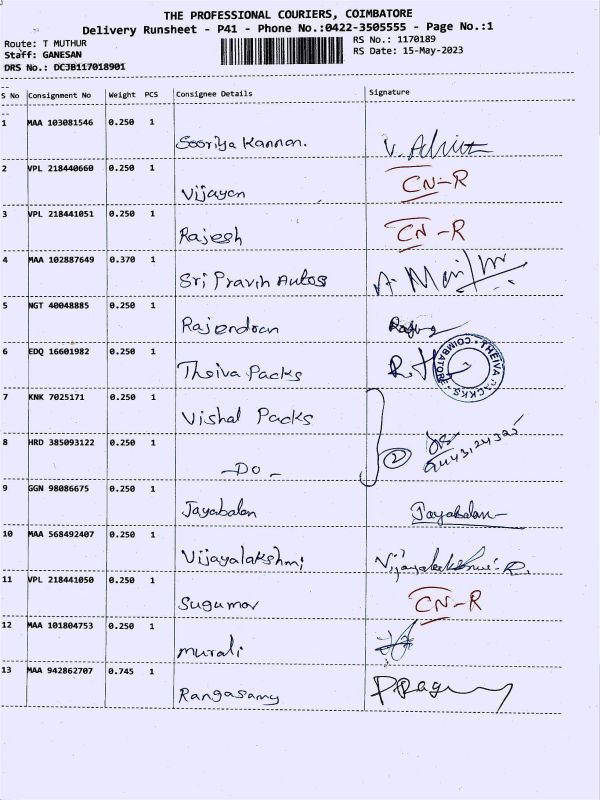 THE PROFESSIONAL COURIERS, COIMBATORE
Delivery Runsheet - P41 - Phone No.:0422-3505555 - Page No.:1
Route: T MUTHUR
RS No.: 1170189
Staff: GANESAN
RS Date: 15-May-2023
DRS No.: DCJB117018901
S No Consignment No Weight PCS Consignee Details Signature
1 MAA 103081546 0.250 1
Sooriya Kannan.
2 VPL 218440660 0.250 1
Vijayan CN-R
3 VPL 218441051 0.250 1
Rajesh CN-R
4 MAA 102887649 0.370 1
Sri Pravin Autos
5 NGT 40048885 0.250 1
Rajendran
6 EDQ 16601982 0.250 1
Theiva Packs THEIVA PACKKS COIMBATORE
7 KNK 7025171 0.250 1
Vishal Packs
8 HRD 385093122 0.250 1
-DO- 2
9 GGN 98086675 0.250 1
Jayabalan Jayabalan
10 MAA 568492407 0.250 1
Vijayalakshmi
11 VPL 218441050 0.250 1
Sugumar CN-R
12 MAA 101804753 0.250 1
murali
13 MAA 942862707 0.745 1
Rangasamy